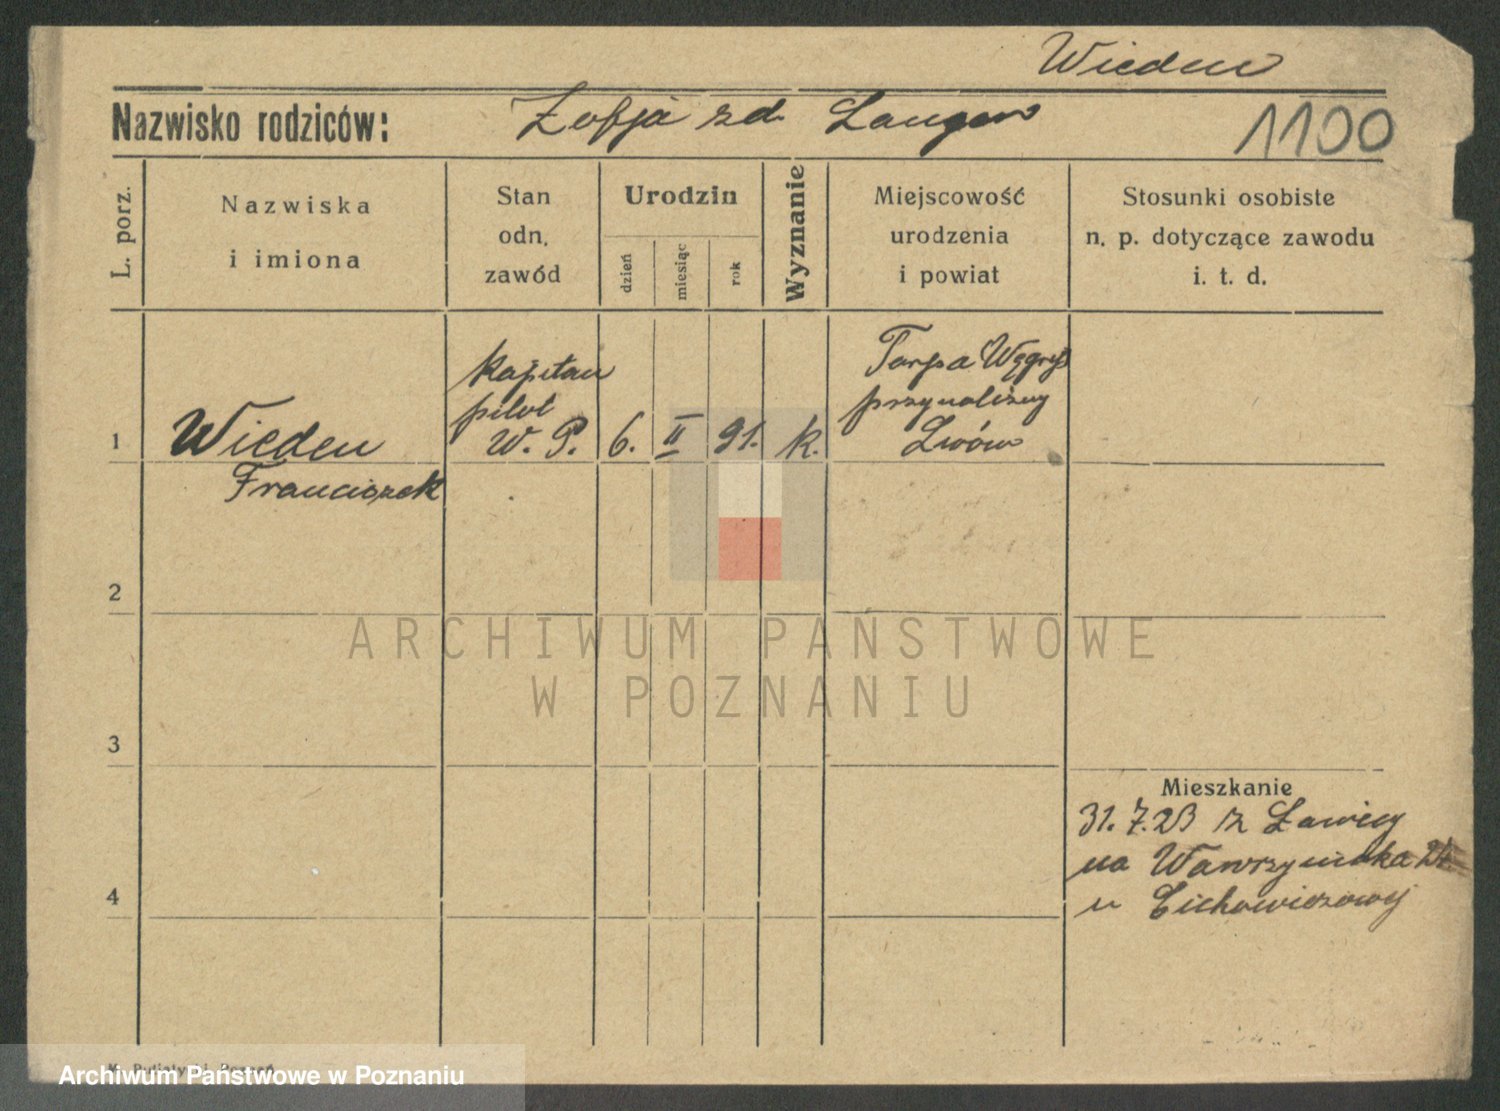 Wieden
Nazwisko rodziców: Zofja zd. Langer
1100
L. porz.
Nazwiska
i imiona
Stan
odn.
zawód
Urodzin
dzień
miesiąc
rok
Wyznanie
Miejscowość
urodzenia
i powiat
Stosunki osobiste
n. p. dotyczące zawodu
i. t. d.
1
Wieden
Franciszek
kapitan
pilot
W. P.
6. II 91. k.
Torpa Węgry
przynależny
Lwów
2
3
4
Mieszkanie
31.7.23 z Ławicy
na Wawrzyniaka
u Cichowiczowej
ARCHIWUM PAŃSTWOWE
W POZNANIU
Archiwum Państwowe w Poznaniu